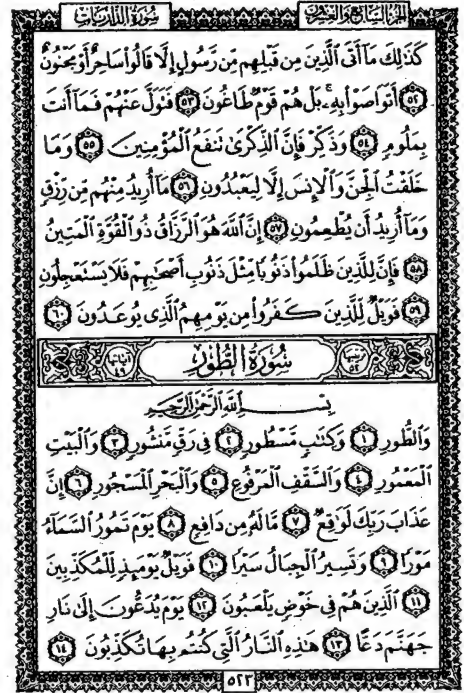 الجزء السابع والعشرون سورة الذاريات
كَذَٰلِكَ مَآ أَتَى ٱلَّذِينَ مِن قَبۡلِهِم مِّن رَّسُولٍ إِلَّا قَالُواْ سَاحِرٌ أَوۡ مَجۡنُونٌ
٥٢ أَتَوَاصَوۡاْ بِهِۦۚ بَلۡ هُمۡ قَوۡمٌ طَاغُونَ ٥٣ فَتَوَلَّ عَنۡهُمۡ فَمَآ أَنتَ
بِمَلُومٍ ٥٤ وَذَكِّرۡ فَإِنَّ ٱلذِّكۡرَىٰ تَنفَعُ ٱلۡمُؤۡمِنِينَ ٥٥ وَمَا
خَلَقۡتُ ٱلۡجِنَّ وَٱلۡإِنسَ إِلَّا لِيَعۡبُدُونِ ٥٦ مَآ أُرِيدُ مِنۡهُم مِّن رِّزۡقٍ
وَمَآ أُرِيدُ أَن يُطۡعِمُونِ ٥٧ إِنَّ ٱللَّهَ هُوَ ٱلرَّزَّاقُ ذُو ٱلۡقُوَّةِ ٱلۡمَتِينُ
٥٨ فَإِنَّ لِلَّذِينَ ظَلَمُواْ ذَنُوبًا مِّثۡلَ ذَنُوبِ أَصۡحَٰبِهِمۡ فَلَا يَسۡتَعۡجِلُونِ
٥٩ فَوَيۡلٌ لِّلَّذِينَ كَفَرُواْ مِن يَوۡمِهِمُ ٱلَّذِي يُوعَدُونَ ٦٠
ترتيبها ٥٢ سُورَةُ الطُّورِ آياتها ٤٩
بِسۡمِ ٱللَّهِ ٱلرَّحۡمَٰنِ ٱلرَّحِيمِ
وَٱلطُّورِ ١ وَكِتَٰبٍ مَّسۡطُورٍ ٢ فِي رَقٍّ مَّنشُورٍ ٣ وَٱلۡبَيۡتِ
ٱلۡمَعۡمُورِ ٤ وَٱلسَّقۡفِ ٱلۡمَرۡفُوعِ ٥ وَٱلۡبَحۡرِ ٱلۡمَسۡجُورِ ٦ إِنَّ
عَذَابَ رَبِّكَ لَوَٰقِعٌ ٧ مَّا لَهُۥ مِن دَافِعٍ ٨ يَوۡمَ تَمُورُ ٱلسَّمَآءُ
مَوۡرًا ٩ وَتَسِيرُ ٱلۡجِبَالُ سَيۡرًا ١٠ فَوَيۡلٌ يَوۡمَئِذٍ لِّلۡمُكَذِّبِينَ
١١ ٱلَّذِينَ هُمۡ فِي خَوۡضٍ يَلۡعَبُونَ ١٢ يَوۡمَ يُدَعُّونَ إِلَىٰ نَارِ
جَهَنَّمَ دَعًّا ١٣ هَٰذِهِ ٱلنَّارُ ٱلَّتِي كُنتُم بِهَا تُكَذِّبُونَ ١٤
٥٢٣